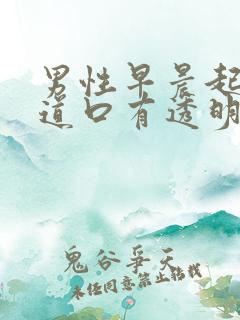 男性早晨起
道口有透明
鬼谷争天
未经同意禁止转载